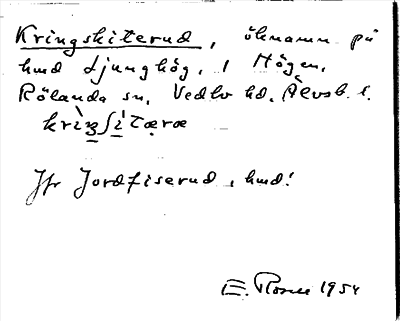 Kringskiterud, öknamn på
hmd Ljunghög, i Högen,
Rölanda sn, Vedbo hd, Älvsb. l.
Jfr Jordfiserud, hmd!
E. Rosell 1954